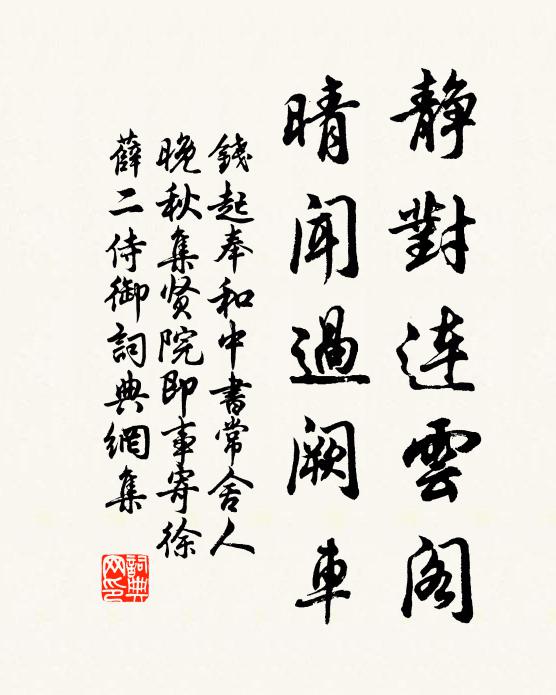 靜對連雲閣
晴聞過闕車
錢起奉和中書常舍人
晚秋集賢院即事寄徐
薛二侍御詞典網集
詞典网印